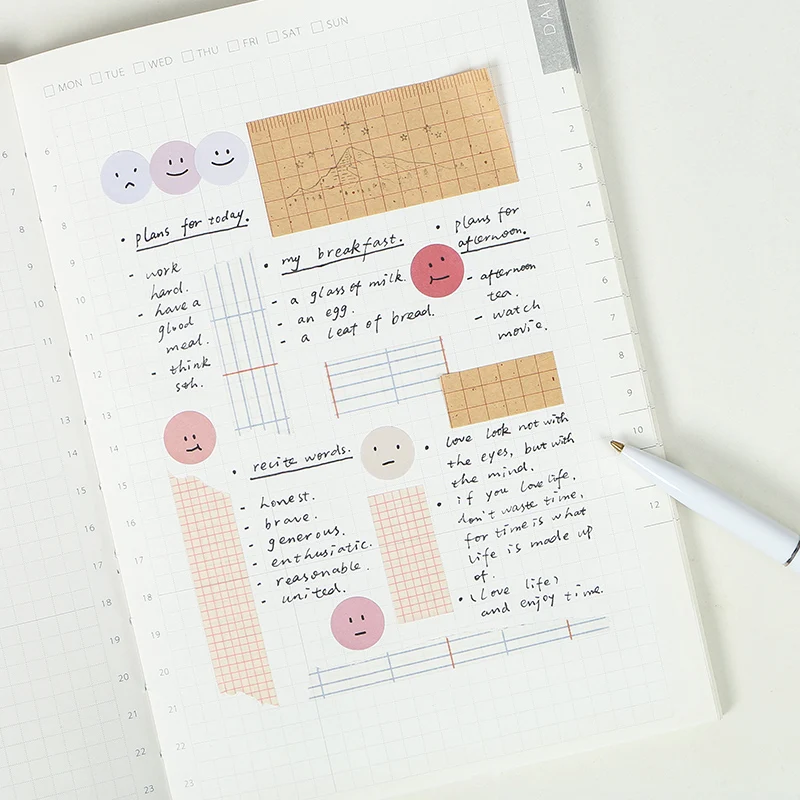 MON TUE WED THU FRI SAT SUN
DAI
• plans for today.
- work
hard.
- have a
glood
meal.
- think
sth.
• my breakfast.
- a glass of milk.
- an egg.
- a leaf of bread.
• plans for
afternoon.
- afternoon
tea.
- watch
movie.
• recite words.
- honest.
- brave.
- generous.
- enthusiatic.
- reasonable.
- united.
• love look not with
the eyes, but with
the mind.
• if you love life,
don't waste time,
for time is what
life is made up
of.
• (Love life)
and enjoy time.
6
7
8
9
10
11
12
13
14
15
16
17
18
19
20
21
22
23
6
7
8
9
10
11
12
13
14
15
16
17
18
19
20
21
22
23
1
2
3
4
5
6
7
8
9
10
12